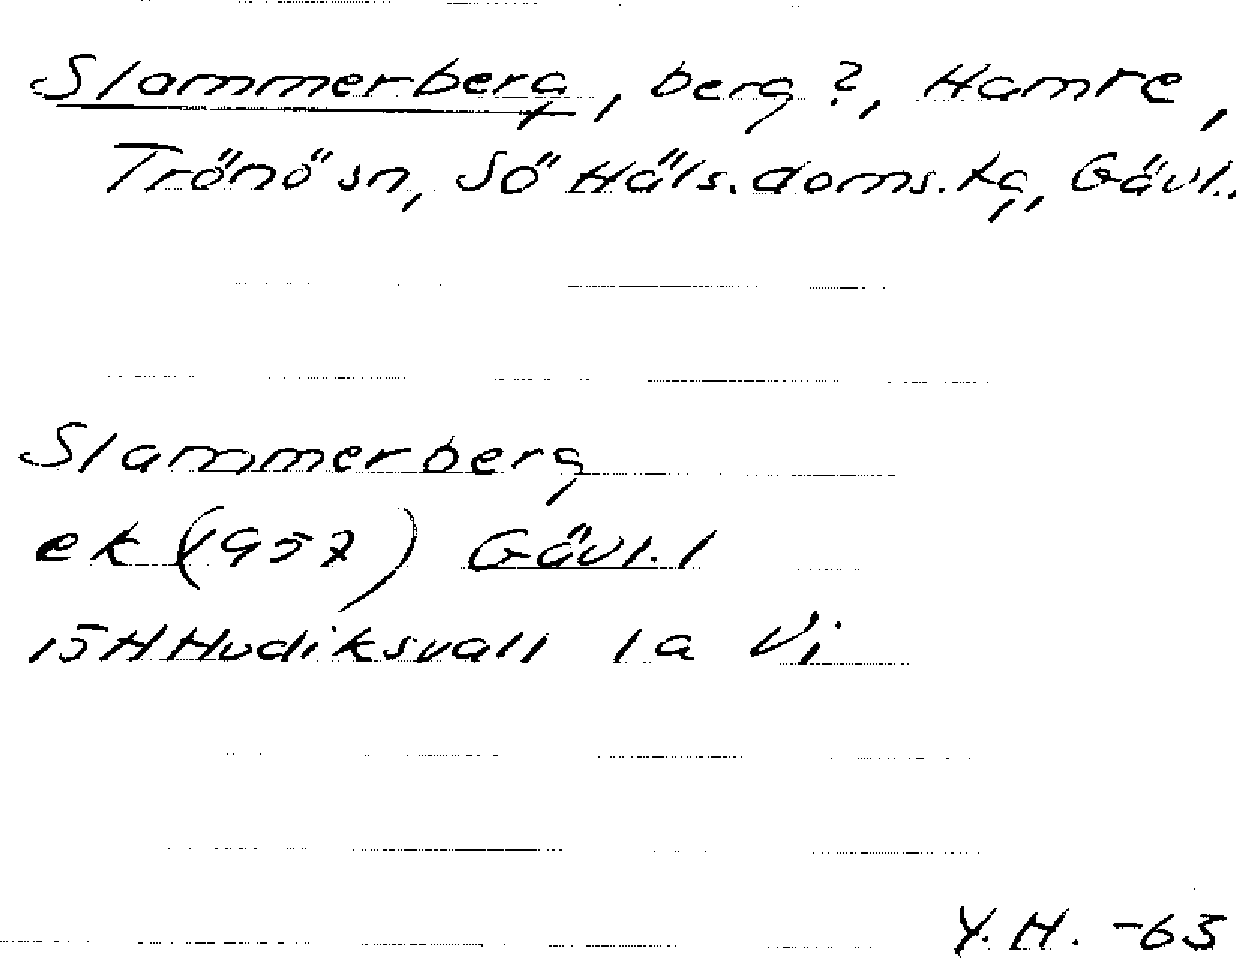 Slammerberg, berg?, Hamre,
Trönö sn, Sö Häls. doms. tg, Gävl.
Slammerberg
ek (1957) Gävl. l
15H Hudiksvall 1a Vi
Y.H. -63